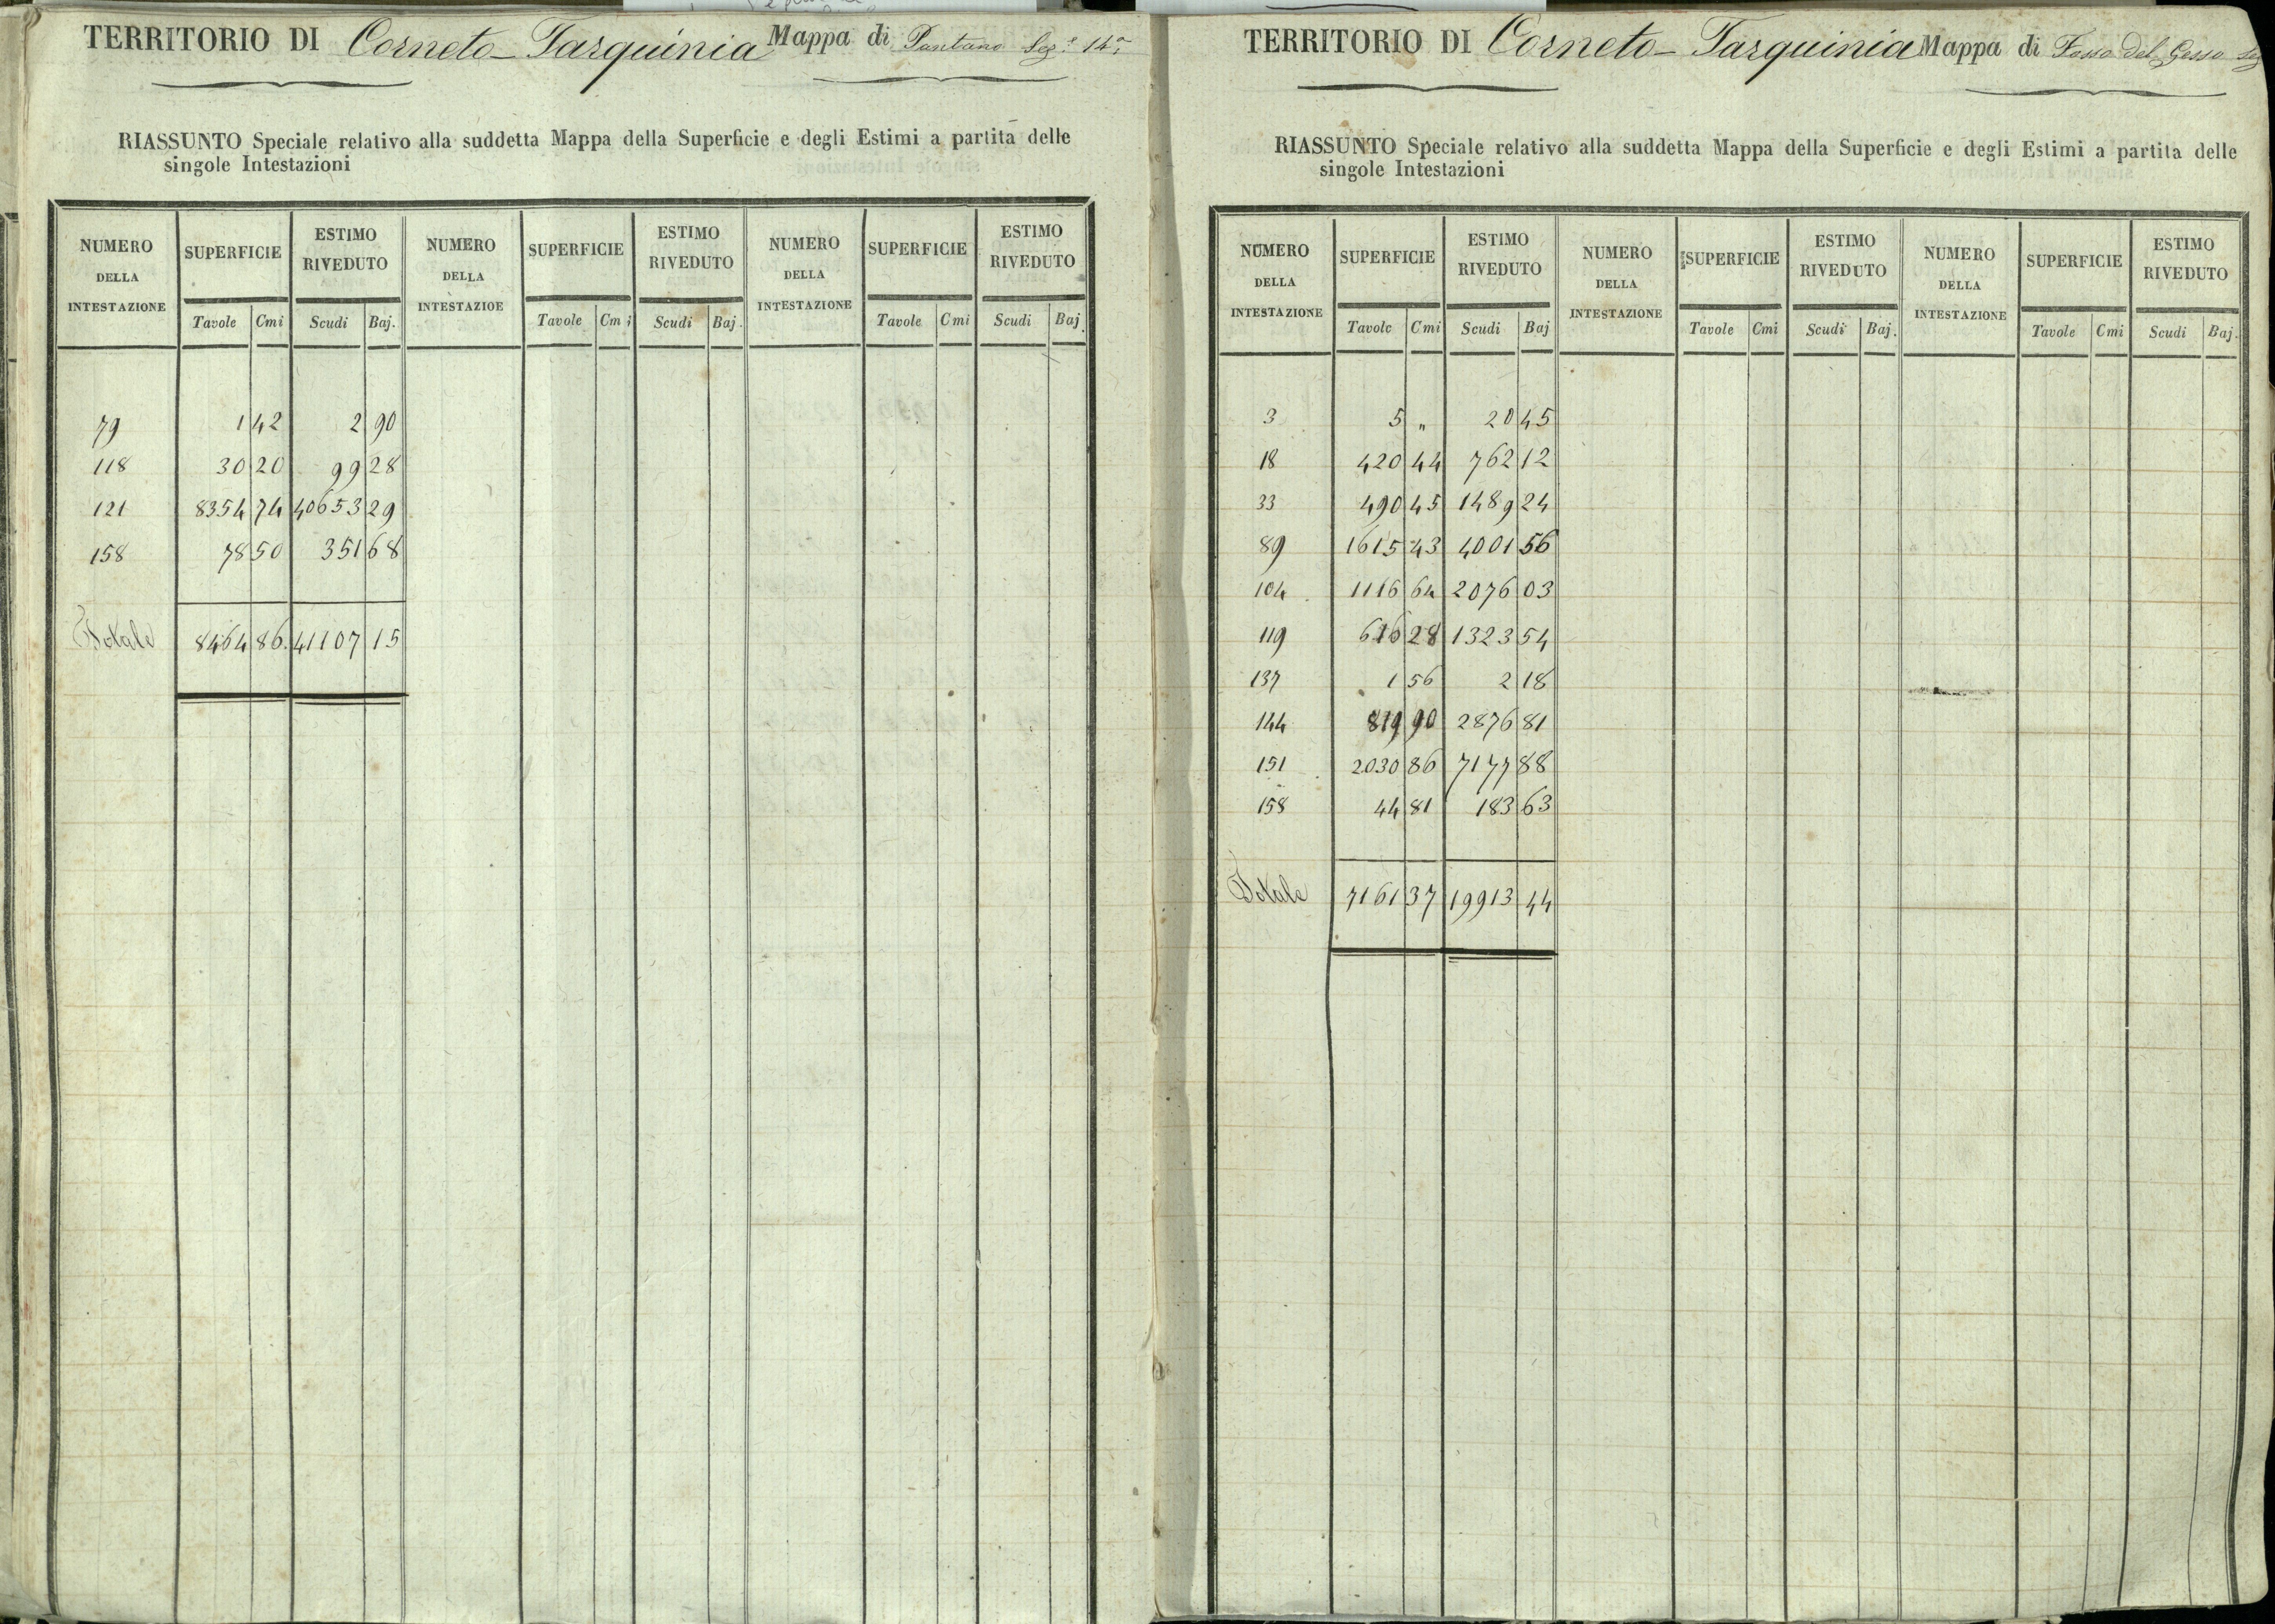 TERRITORIO DI Corneto-Tarquinia Mappa di Pantano Sez.e 14a
RIASSUNTO Speciale relativo alla suddetta Mappa della Superficie e degli Estimi a partita delle
singole Intestazioni
NUMERO DELLA INTESTAZIONE SUPERFICIE ESTIMO RIVEDUTO NUMERO DELLA INTESTAZIOE SUPERFICIE ESTIMO RIVEDUTO NUMERO DELLA INTESTAZIONE SUPERFICIE ESTIMO RIVEDUTO
Tavole Cmi Scudi Baj. Tavole Cmi Scudi Baj. Tavole Cmi Scudi Baj.
79 1 42 2 90
118 30 20 99 28
121 8354 74 40653 29
158 78 50 351 68
Totale 8464 86 41107 15
TERRITORIO DI Corneto-Tarquinia Mappa di Fosso del Gesso Sez
RIASSUNTO Speciale relativo alla suddetta Mappa della Superficie e degli Estimi a partita delle
singole Intestazioni
NUMERO DELLA INTESTAZIONE SUPERFICIE ESTIMO RIVEDUTO NUMERO DELLA INTESTAZIONE SUPERFICIE ESTIMO RIVEDUTO NUMERO DELLA INTESTAZIONE SUPERFICIE ESTIMO RIVEDUTO
Tavole Cmi Scudi Baj Tavole Cmi Scudi Baj. Tavole Cmi Scudi Baj.
3 5 " 20 45
18 420 44 762 12
33 490 45 1489 24
89 1615 43 4001 56
104 1116 64 2076 03
119 616 28 1323 54
137 1 56 2 18
144 819 90 2876 81
151 2030 86 7177 88
158 44 81 183 63
Totale 7161 37 19913 44